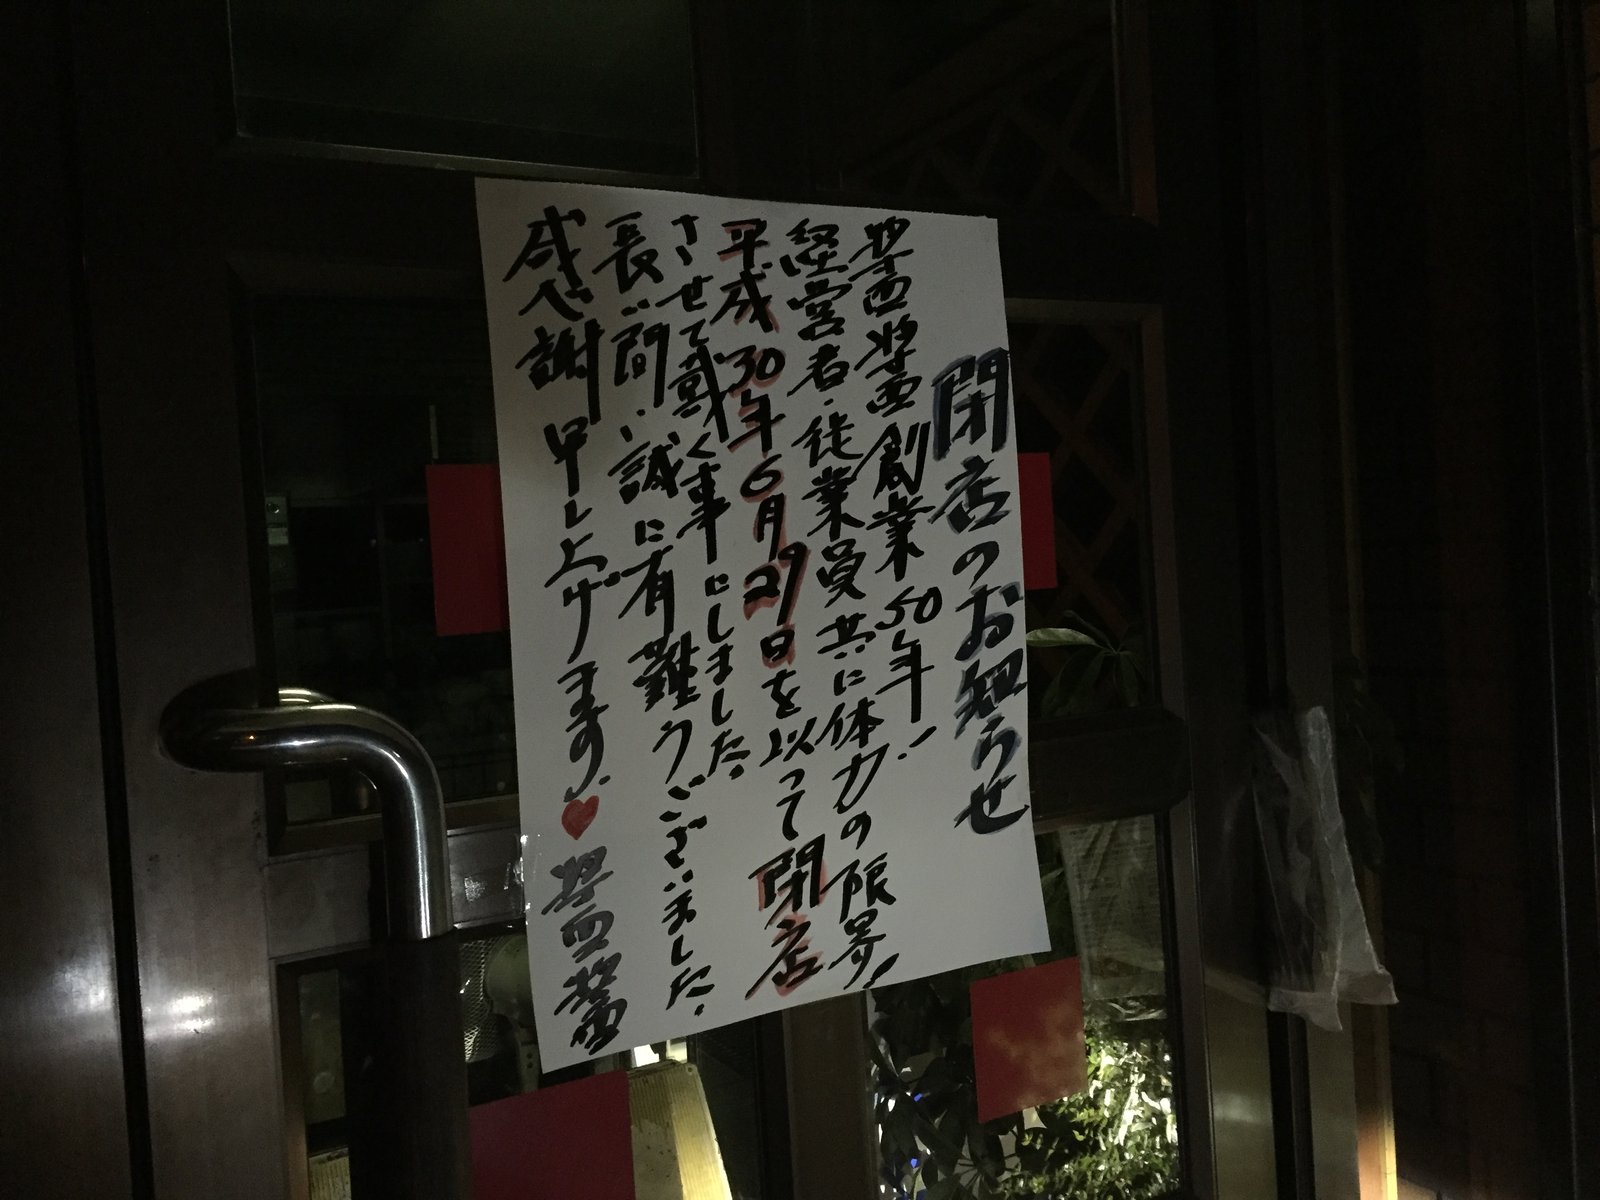 閉店のお知らせ
醤醤 創業50年!
経営者・従業員共に体力の限界!
平成30年6月29日を以って閉店
させて戴く事にしました。
長い間、誠に有難うございました。
感謝申し上げます。♥醤醤